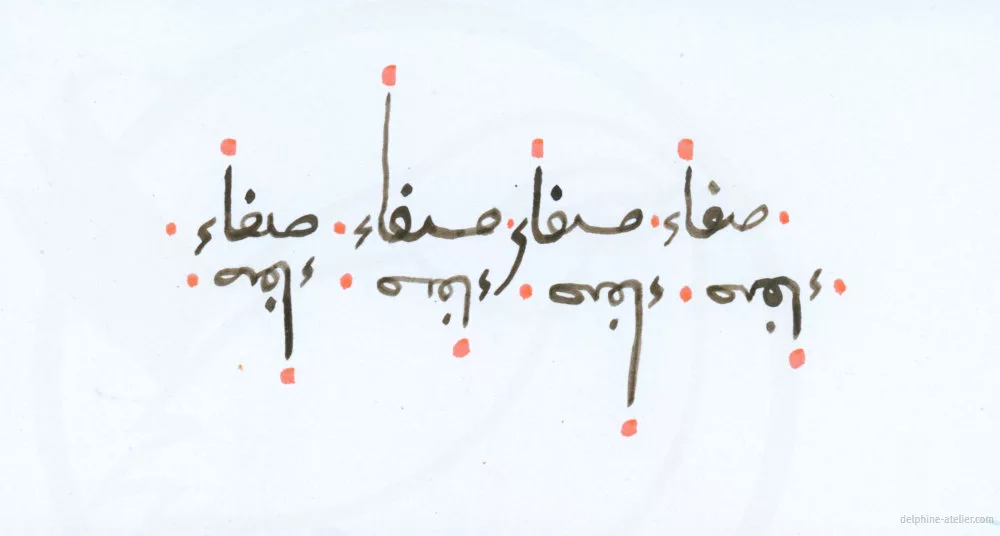 صفاء صفاء صفاء صفاء
صفاء صفاء صفاء صفاء
delphine-atelier.com